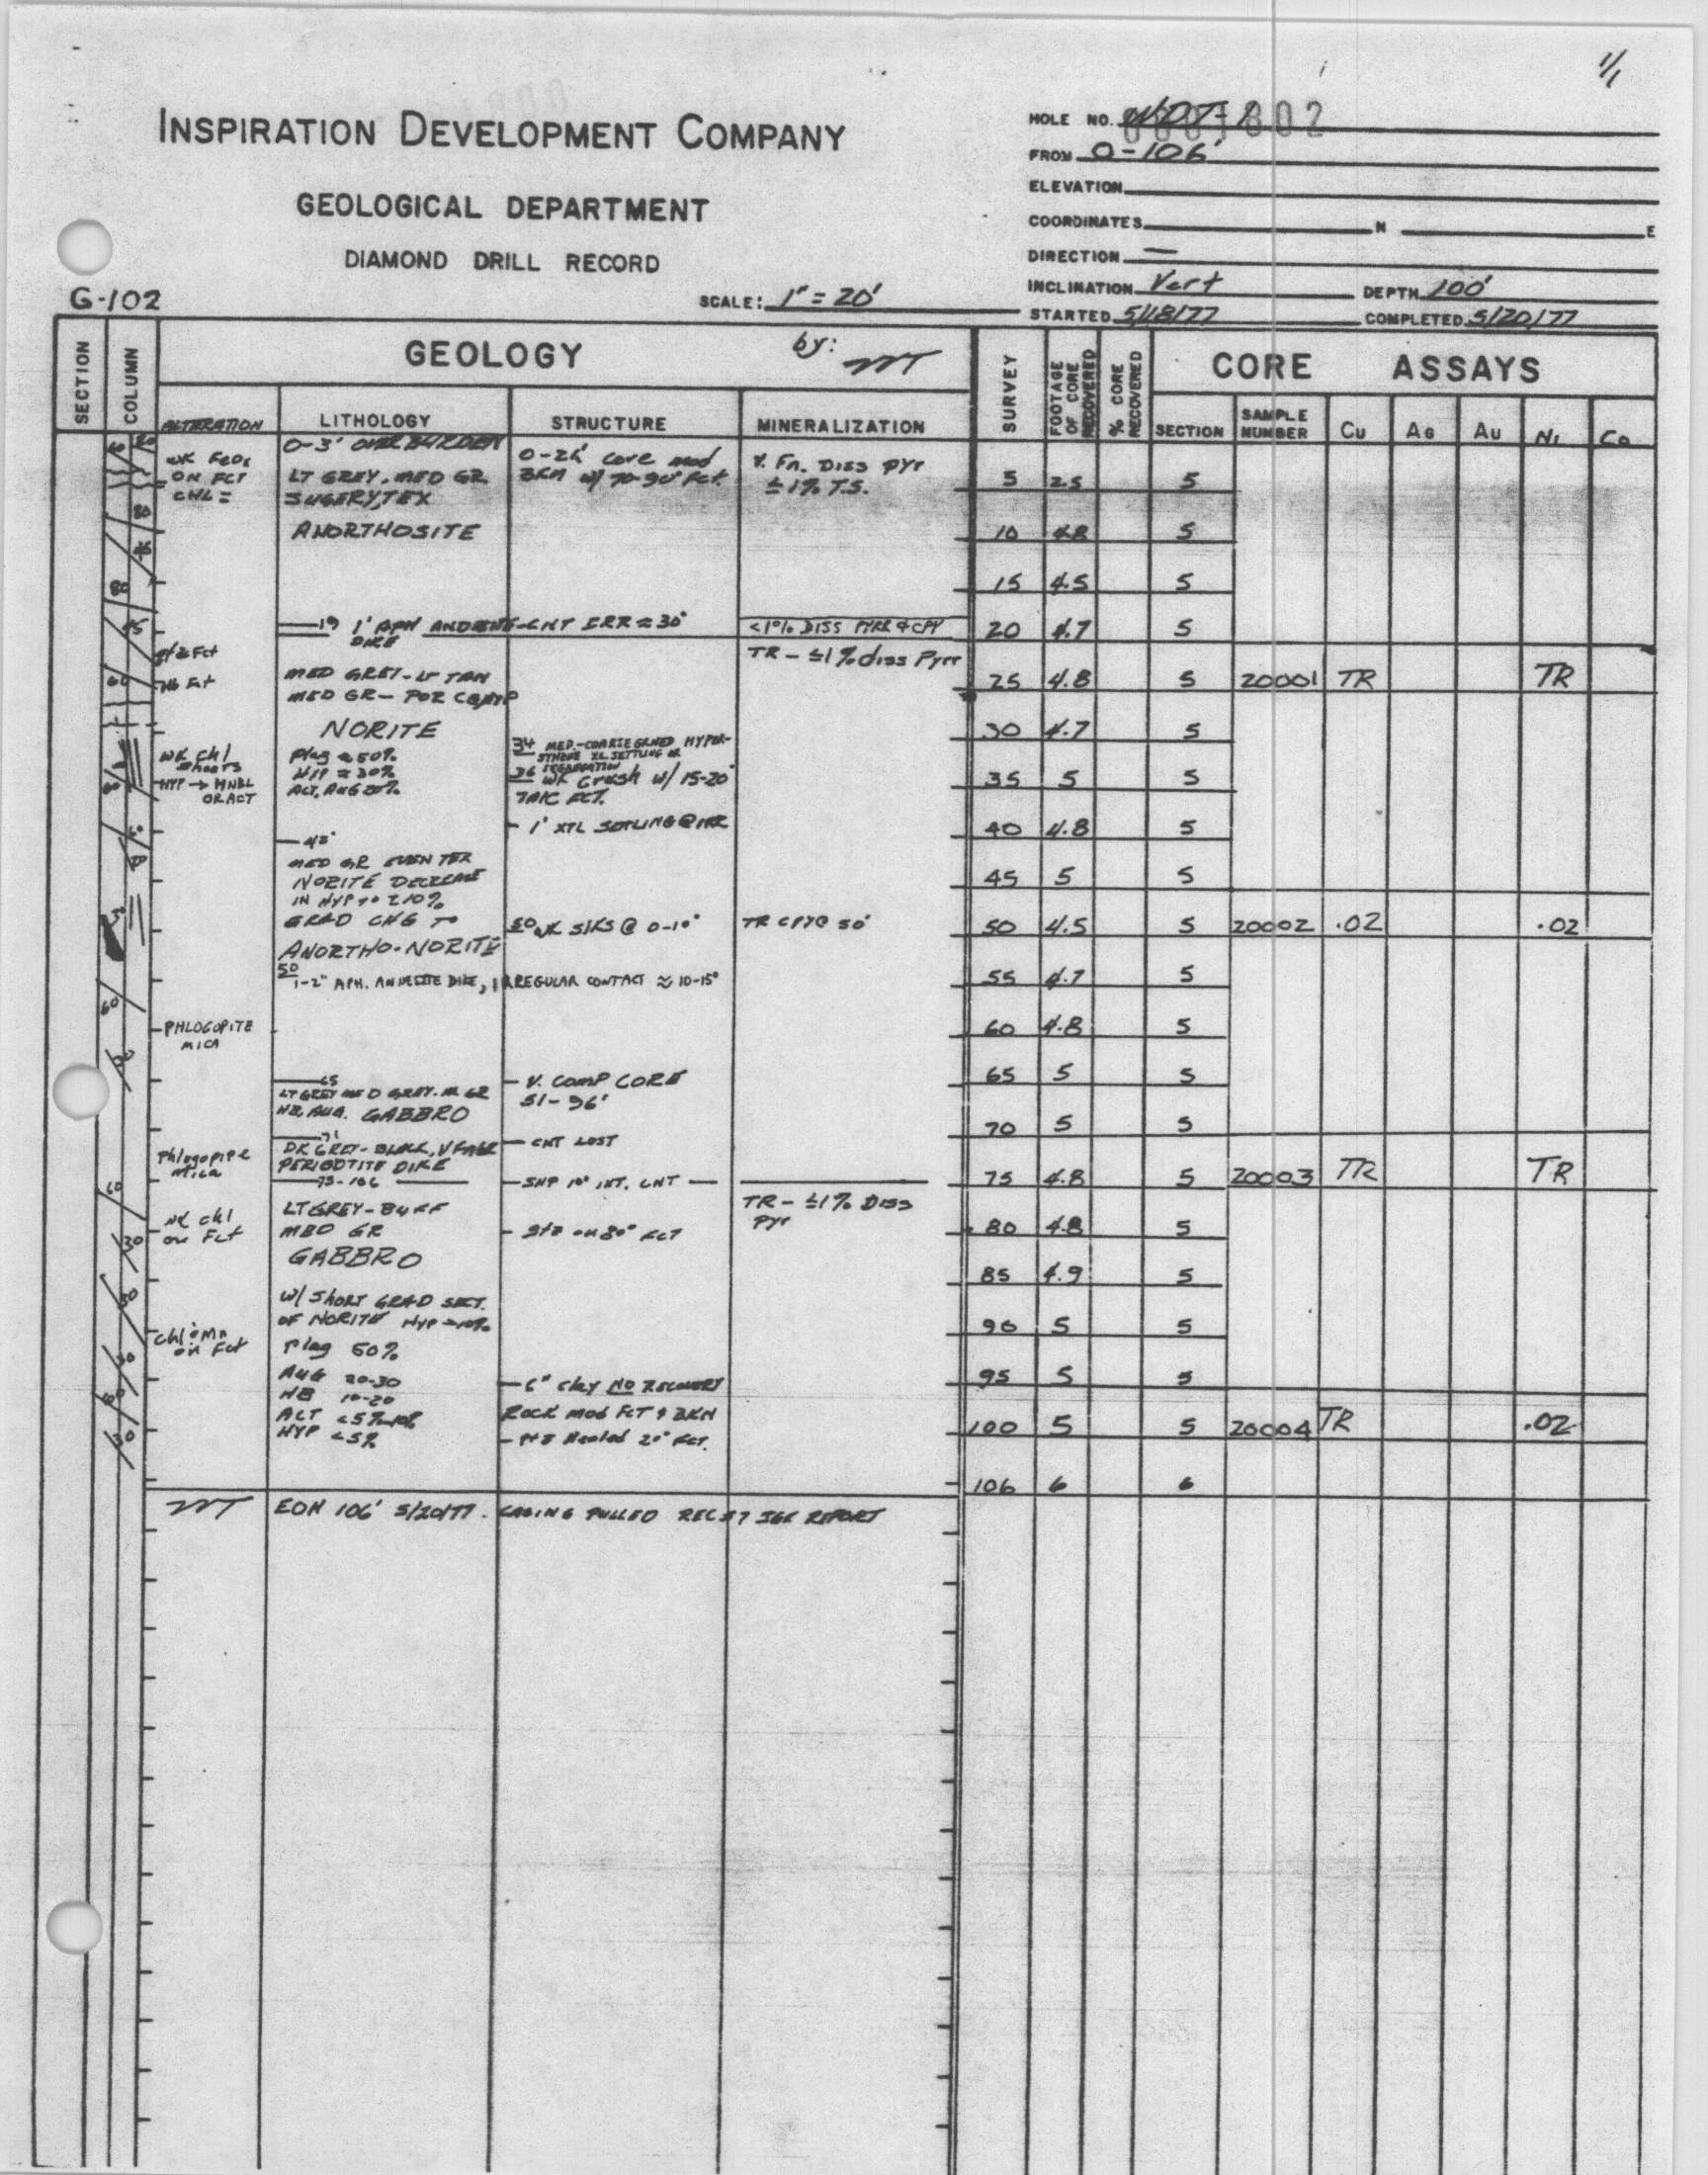 1/1
INSPIRATION DEVELOPMENT COMPANY
GEOLOGICAL DEPARTMENT
DIAMOND DRILL RECORD
G-102
SCALE: 1" = 20'
HOLE NO.
FROM 0-106'
ELEVATION
COORDINATES N E
DIRECTION —
INCLINATION Vert DEPTH 100'
STARTED 5/18/77 COMPLETED 5/20/77
SECTION COLUMN GEOLOGY by: SURVEY FOOTAGE OF CORE RECOVERED % CORE RECOVERED CORE ASSAYS
ALTERATION LITHOLOGY STRUCTURE MINERALIZATION SECTION SAMPLE NUMBER Cu AG AU Ni Co
WK FeOx
ON FCT
CHL =
0-3' OVERBURDEN
LT GREY. MED GR.
SUGERY TEX
ANORTHOSITE
0-26' core mod
BKN w/ 70-90° Fct.
V. Fn. Diss PYR
≤1% T.S.
19 1' APH ANDESITE-CNT IRR ≈ 30°
DIKE
<1% DISS PYRR & CPY
TR - ≤1% diss Pyrr
MED GREY-LT TAN
MED GR - POR COMP
NORITE
Plag ≈ 50%
HYP ≈ 30%
WK chl
HYP → HNBL
OR ACT
34 MED.-COARSE GRNED HYPER-
STHENE XL SETTLING OR
SEGREGATION
36 WK Crush w/ 15-20°
TALC FCT.
- 1' XTL SETTLING @ IRR
MED GR EVEN TEX
NORITE DECREASE
IN HYP TO ±10%
GRAD CHG TO
ANORTHO-NORITE
50 WK SlKS @ 0-10°
TR CPY @ 50'
50
1-2" APH. ANDESITE DIKE, IRREGULAR CONTACT ≈ 10-15°
PHLOGOPITE
MICA
65
LT GREY MED GREY. M GR
HB, AUG. GABBRO
- V. COMP CORE
51-96'
71
DK GREY-BLACK, V FNGR
PERIDOTITE DIKE
75-106
- CNT LOST
- SHP 10° INT. CNT -
Phlogopite
mica
WK chl
on Fct
LT GREY-BUFF
MED GR
GABBRO
TR - ≤1% DISS
PYr
W/ SHORT GRAD SECT.
OF NORITE HYP ≈ 10%
Plag 50%
AUG 20-30
HB 10-20
HYP <5%
on Fct
- 6" clay NO RECOVERY
ROCK mod FCT & BKN
- Healed 20° FCT.
EOH 106' 5/20/77. CASING PULLED REC REPORT
5 2.5 5
10 4.8 5
15 4.5 5
20 4.7 5
25 4.8 5 20001 TR TR
30 4.7 5
35 5 5
40 4.8 5
45 5 5
50 4.5 5 20002 .02 .02
55 4.7 5
60 4.8 5
65 5 5
70 5 5
75 4.8 5 20003 TR TR
80 4.8 5
85 4.9 5
90 5 5
95 5 5
100 5 5 20004 TR .02
106 6 6